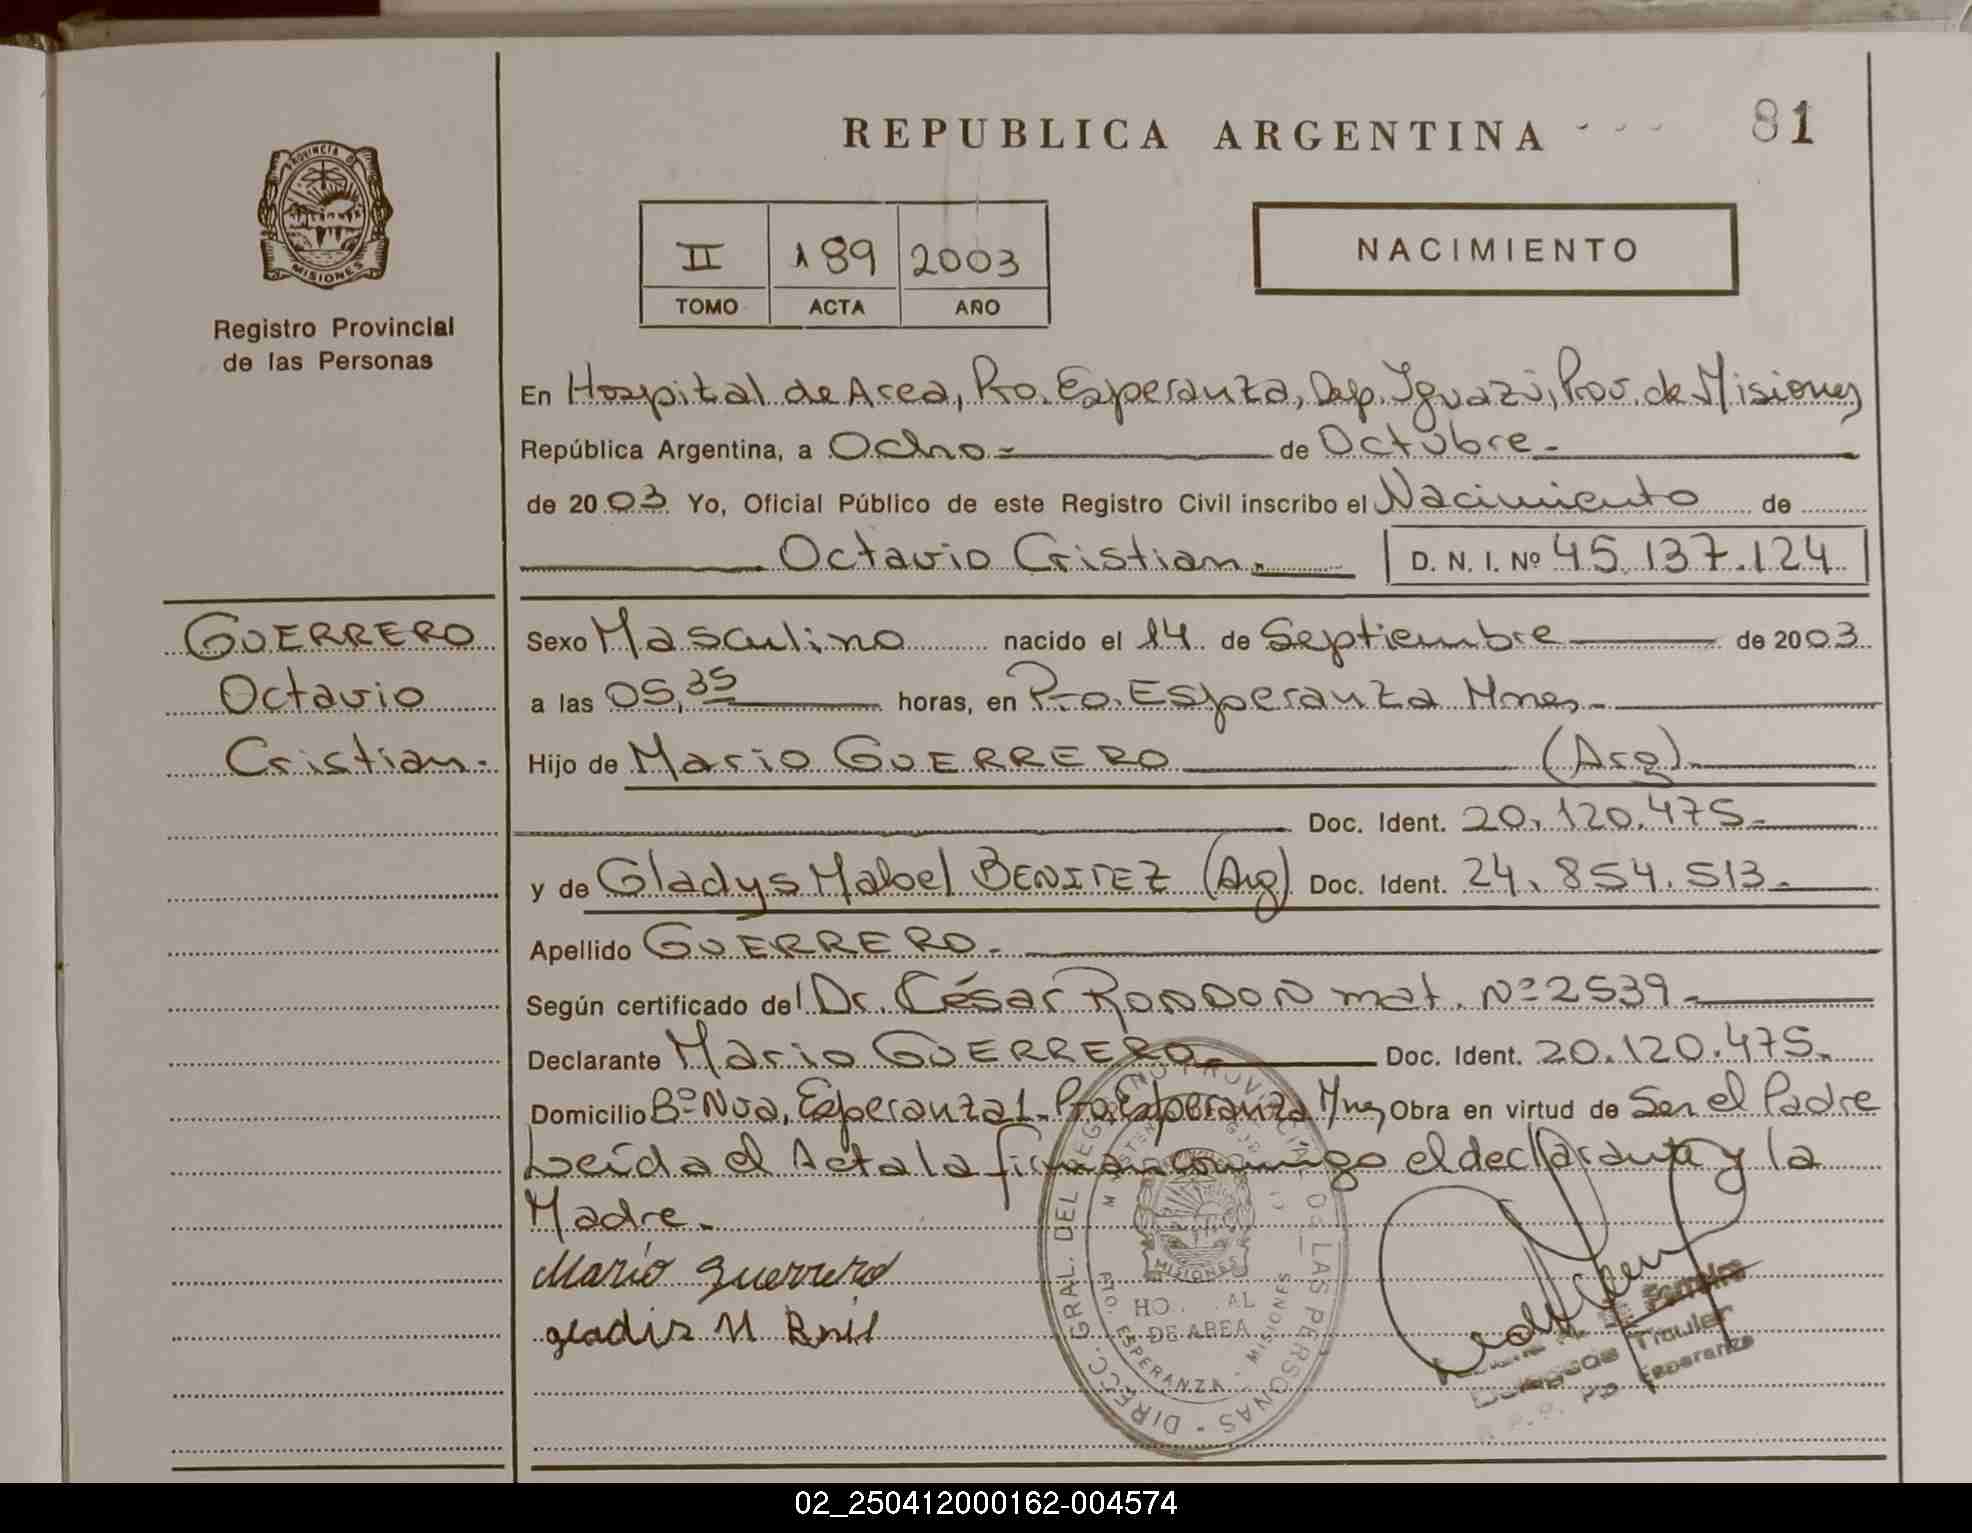 REPUBLICA ARGENTINA
81
PROVINCIA DE
MISIONES
Registro Provincial
de las Personas
II 189 2003
TOMO ACTA AÑO
NACIMIENTO
En Hospital de Area, Pto. Esperanza, Dep. Iguazú, Prov. de Misiones
República Argentina, a Ocho.- de Octubre.-
de 2003 Yo, Oficial Público de este Registro Civil inscribo el Nacimiento de
Octavio Cristian.- D. N. I. Nº 45.137.124
GUERRERO
Octavio
Cristian.-
Sexo Masculino nacido el 14 de Septiembre de 2003
a las 05,35 horas, en Pto. Esperanza Mnes.-
Hijo de Mario GUERRERO (Arg).-
Doc. Ident. 20.120.475.-
y de Gladys Mabel BENITEZ (Arg) Doc. Ident. 24.854.513.-
Apellido GUERRERO.-
Según certificado del Dr. César RONDON mat. Nº 2539.-
Declarante Mario GUERRERO.- Doc. Ident. 20.120.475.-
Domicilio Bº Nva. Esperanza 1. Pto. Esperanza Mnes Obra en virtud de Ser el Padre
Leída el Acta la firman conmigo el declarante y la
Madre.-
Mario Guerrero
gladis M
DIRECC. GRAL. DEL REGISTRO PROVINCIAL DE LAS PERSONAS
MISIONES
HO AL
DE AREA
PTO. ESPERANZA - MISIONES
Titular
Esperanza
02_250412000162-004574